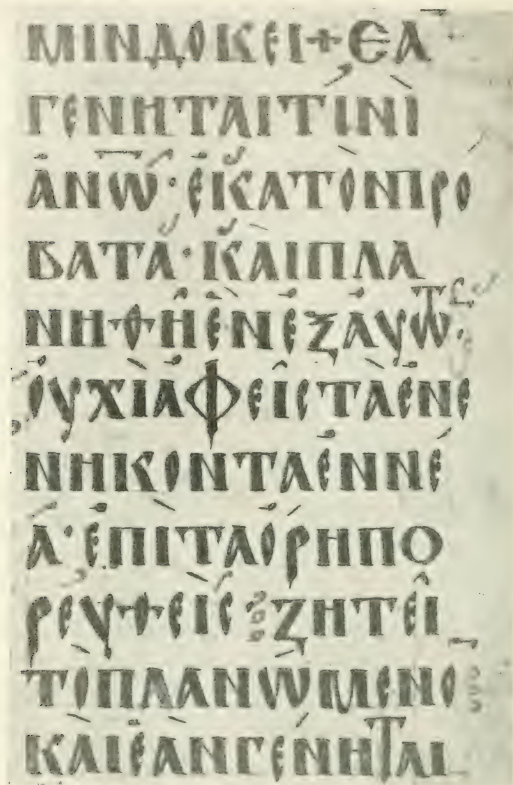 ΜΙΝΔΟΚΕΙ+ΕΑ̅
ΓΕΝΗΤΑΙΤΙΝΙ
ΑΝ̅Ω̅·ΕΚΑΤΟΝΠΡΟ
ΒΑΤΑ·ΚΑΙΠΛΑ
ΝΗΘΗΕΝΕΞΑΥΤΩ·
ΟΥΧΙΑΦΕΙϹΤΑΕΝΕ
ΝΗΚΟΝΤΑΕΝΝΕ
Α·ΕΠΙΤΑΟΡΗΠΟ
ΡΕΥΘΕΙϹ⁝ΖΗΤΕΙ
ΤΟΠΛΑΝΩΜΕΝΟ̅⁝
ΚΑΙΕΑΝΓΕΝΗΤΑΙ